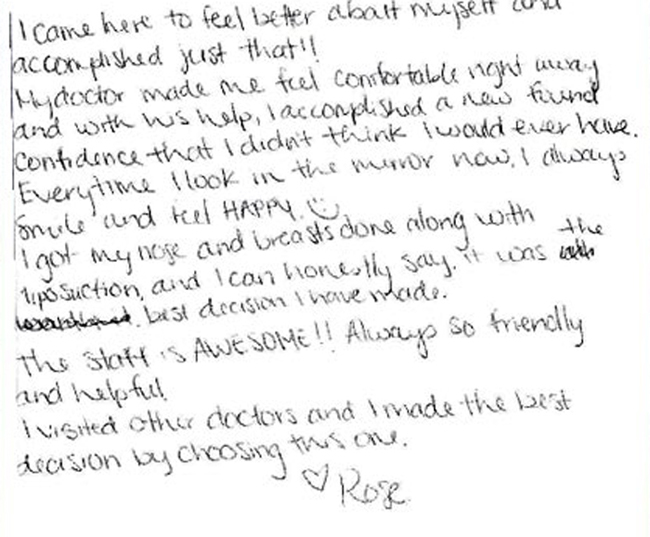 I came here to feel better about myself and
accomplished just that!!
My doctor made me feel comfortable right away
and with his help, I accomplished a new found
confidence that I didn't think I would ever have.
Everytime I look in the mirror now, I always
smile and feel HAPPY. ☺
I got my nose and breasts done along with
liposuction, and I can honestly say, it was the
best decision I have made.
The staff is AWESOME!! Always so friendly
and helpful.
I visited other doctors and I made the best
decision by choosing this one.
♡ Rose